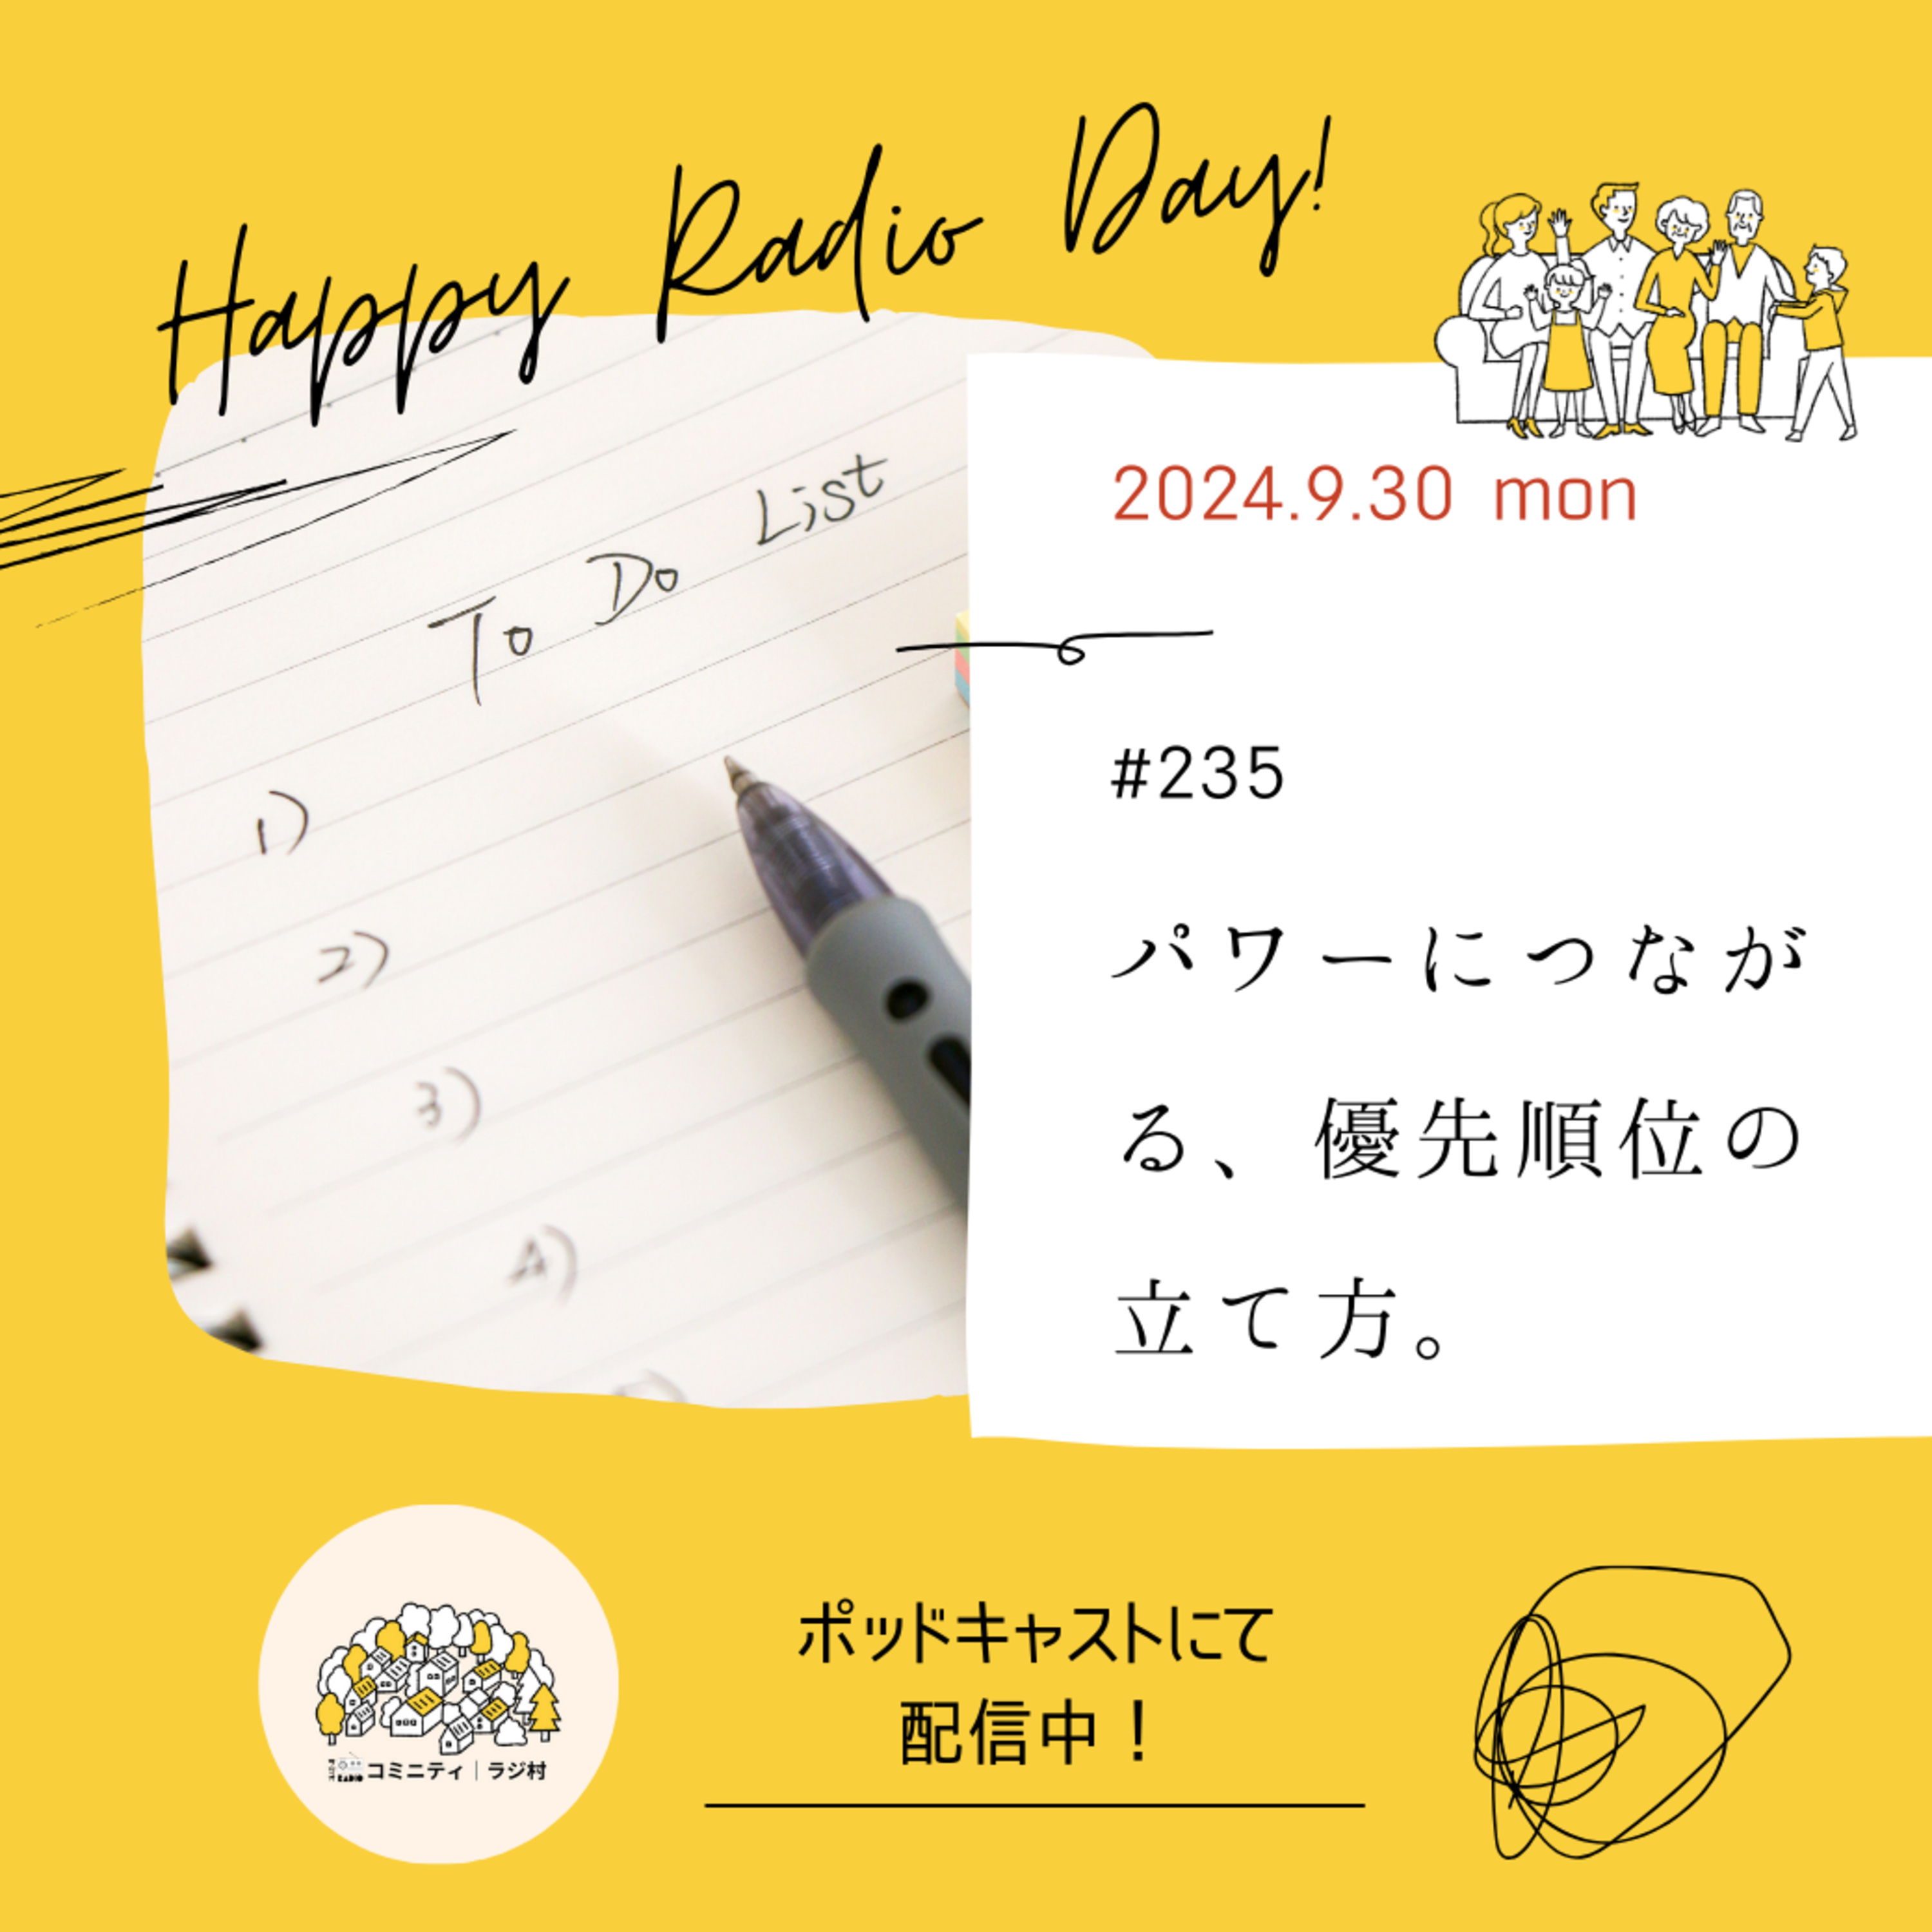 Happy Radio Day!
To Do List
1)
2)
3)
4)
2024.9.30 mon
#235
パワーにつなが
る、優先順位の
立て方。
RADIO コミニティ｜ラジ村
ポッドキャストにて
配信中！